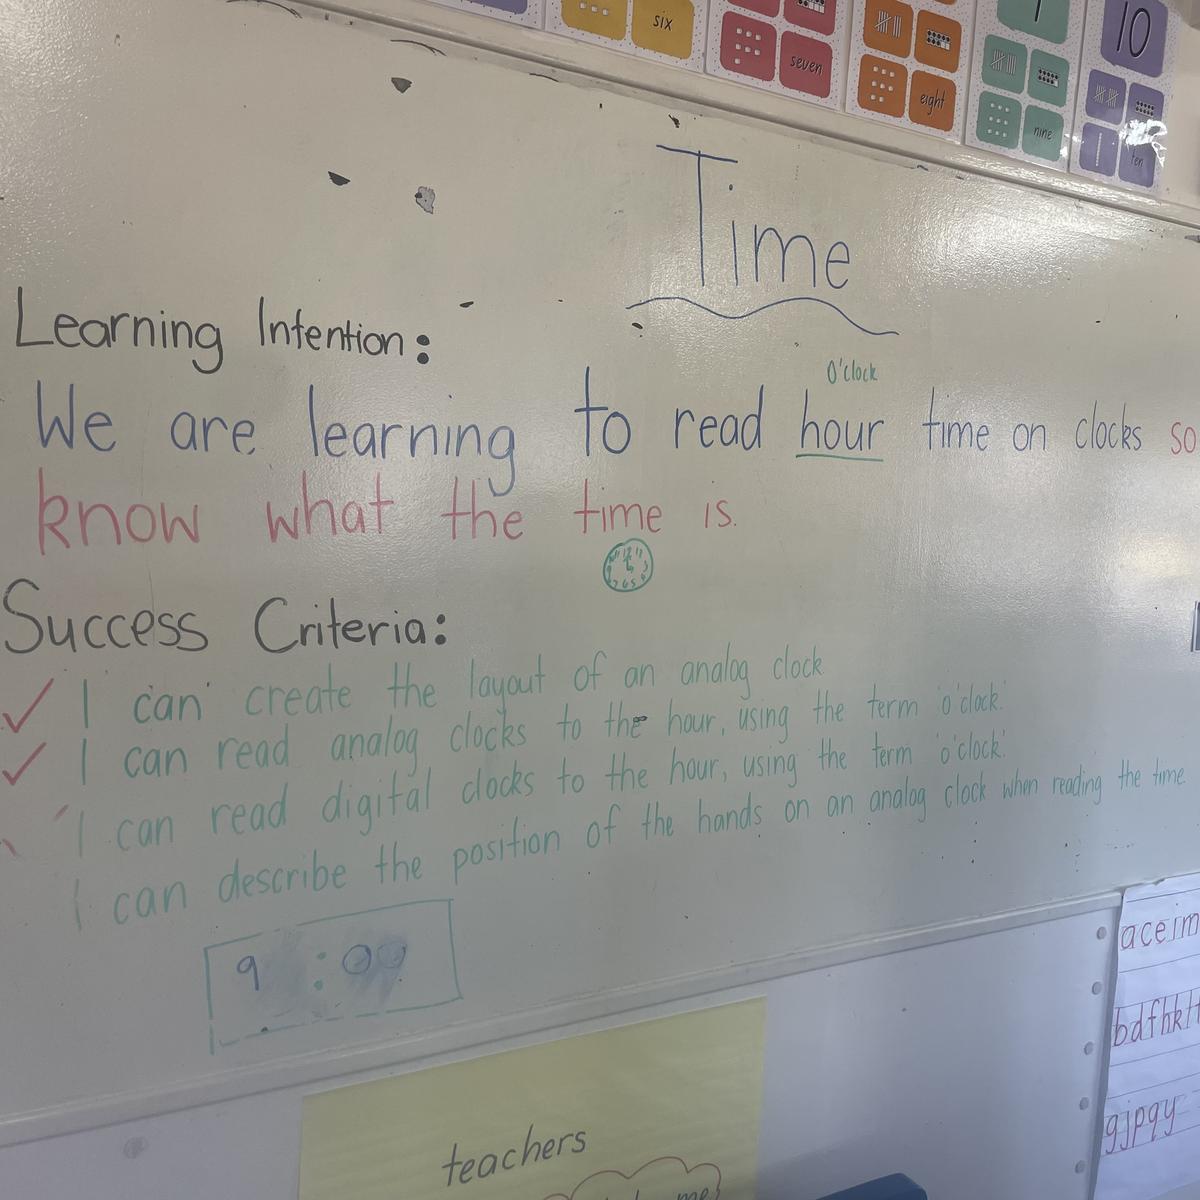 six
seven
eight
nine
10
ten
Time
Learning Intention:
O'clock
We are learning to read hour time on clocks so
know what the time is.
Success Criteria:
✓ I can create the layout of an analog clock
✓ I can read analog clocks to the hour, using the term 'o'clock'.
I can read digital clocks to the hour, using the term 'o'clock'.
I can describe the position of the hands on an analog clock when reading the time
9 : 00
aceim
bdfhklt
gjpqy
teachers